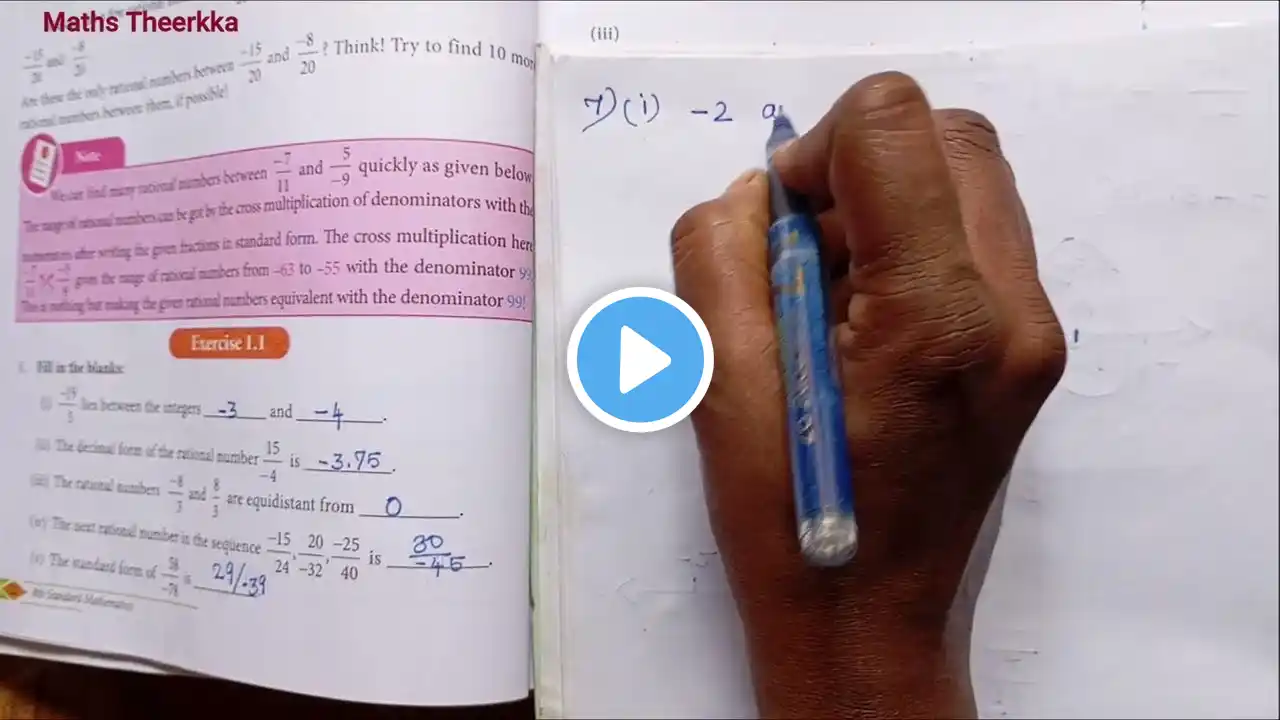 Maths Theerkka
-15/20 and -8/20
Are these the only rational numbers between -15/20 and -8/20 ? Think! Try to find 10 mor
rational numbers between them, if possible!
Note
We can find many rational numbers between -7/11 and 5/-9 quickly as given below
The range of rational numbers can be got by the cross multiplication of denominators with the
numerators after writing the given fractions in standard form. The cross multiplication here
gives the range of rational numbers from -63 to -55 with the denominator 99
This is nothing but making the given rational numbers equivalent with the denominator 99!
Exercise 1.1
1. Fill in the blanks:
(i) -19/5 lies between the integers -3 and -4.
(ii) The decimal form of the rational number 15/-4 is -3.75.
(iii) The rational numbers -8/3 and 8/3 are equidistant from 0.
(iv) The next rational number in the sequence -15/24, 20/-32, -25/40 is 30/-45.
(v) The standard form of 58/-78 is 29/-39
8th Standard Mathematics
(iii)
7) (i) -2 a